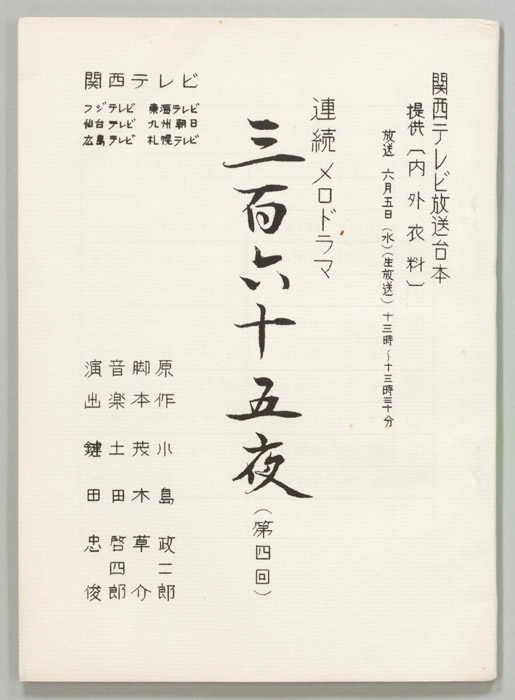 関西テレビ放送台本
提供〔内外衣料〕
放送 六月五日(水)(生放送)十三時~十三時三十分
連続メロドラマ
三百六十五夜
(第四回)
関西テレビ
フジテレビ 東海テレビ
仙台テレビ 九州朝日
広島テレビ 札幌テレビ
原作 小島政二郎
脚本 茂木草介
音楽 土田啓四郎
演出 鍵田忠俊